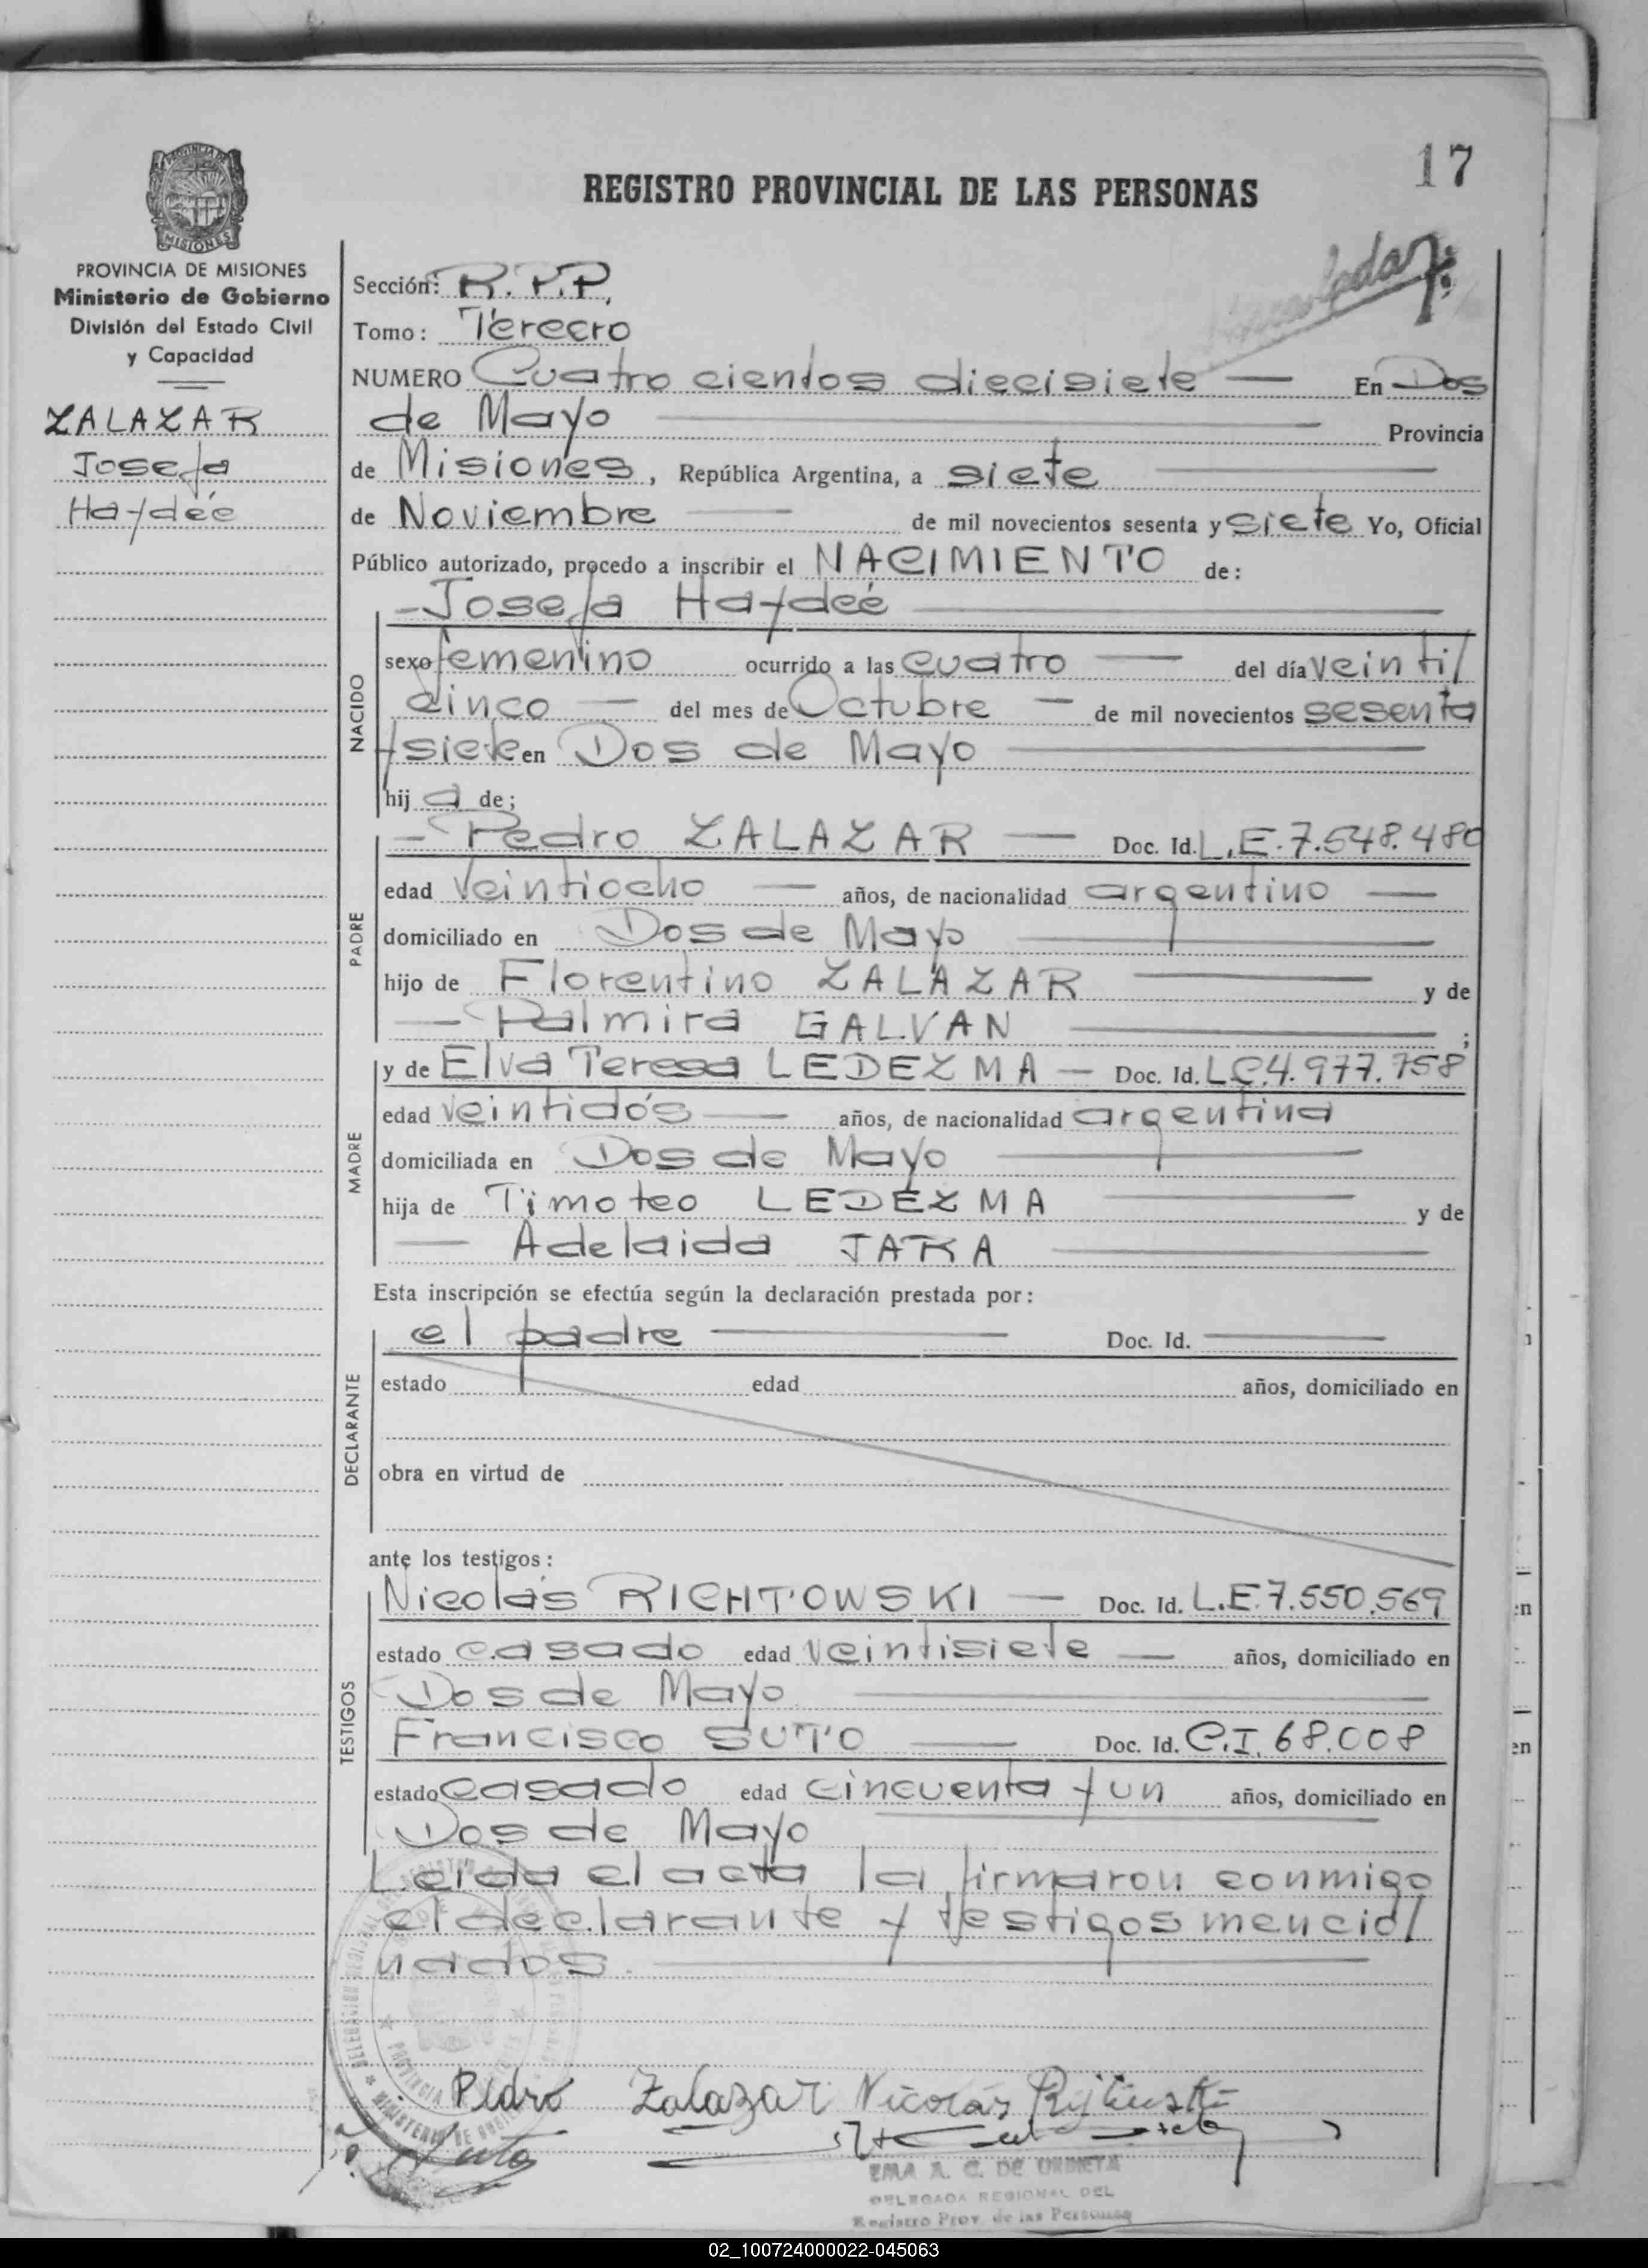 17
REGISTRO PROVINCIAL DE LAS PERSONAS
PROVINCIA DE MISIONES
Ministerio de Gobierno
División del Estado Civil
y Capacidad
ZALAZAR
Josefa
Haydeé
Sección: R.P.P,
Tomo: Tercero
NUMERO Cuatro cientos diecisiete — En Dos
de Mayo — Provincia
de Misiones, República Argentina, a siete —
de Noviembre — de mil novecientos sesenta y siete Yo, Oficial
Público autorizado, procedo a inscribir el NACIMIENTO de:
NACIDO
— Josefa Haydeé —
sexo femenino ocurrido a las cuatro — del día veinti/
cinco — del mes de Octubre — de mil novecientos sesenta
y siete en Dos de Mayo —
hij a de;
PADRE
— Pedro ZALAZAR — Doc. Id. L.E. 7.548.480
edad veintiocho — años, de nacionalidad argentino —
domiciliado en Dos de Mayo —
hijo de Florentino ZALAZAR — y de
— Palmira GALVAN — ;
MADRE
y de Elva Teresa LEDEZMA — Doc. Id. L.C.4.977.758
edad veintidós — años, de nacionalidad argentina
domiciliada en Dos de Mayo —
hija de Timoteo LEDEZMA — y de
— Adelaida JARA —
Esta inscripción se efectúa según la declaración prestada por:
DECLARANTE
el padre — Doc. Id. —
estado edad años, domiciliado en
obra en virtud de
ante los testigos:
TESTIGOS
Nicolás RICHTOWSKI — Doc. Id. L.E.7.550.569
estado casado edad veintisiete — años, domiciliado en
Dos de Mayo —
Francisco SUTO — Doc. Id. C.I. 68.008
estado casado edad cincuenta y un años, domiciliado en
Dos de Mayo —
Leida el acta la firmaron conmigo
el declarante y testigos mencio/
nados. —
Pedro Zalazar Nicolás
Suto
EMA A. C. DE URDINETA
DELEGADA REGIONAL DEL
Registro Prov. de las Personas
02_100724000022-045063